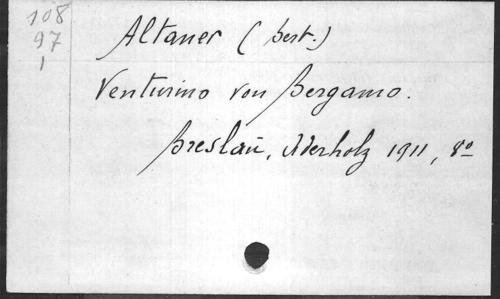 108
97
1
Altaner (Bert.)
Venturino von Bergamo.
Breslau, Aderholz 1911, 8º